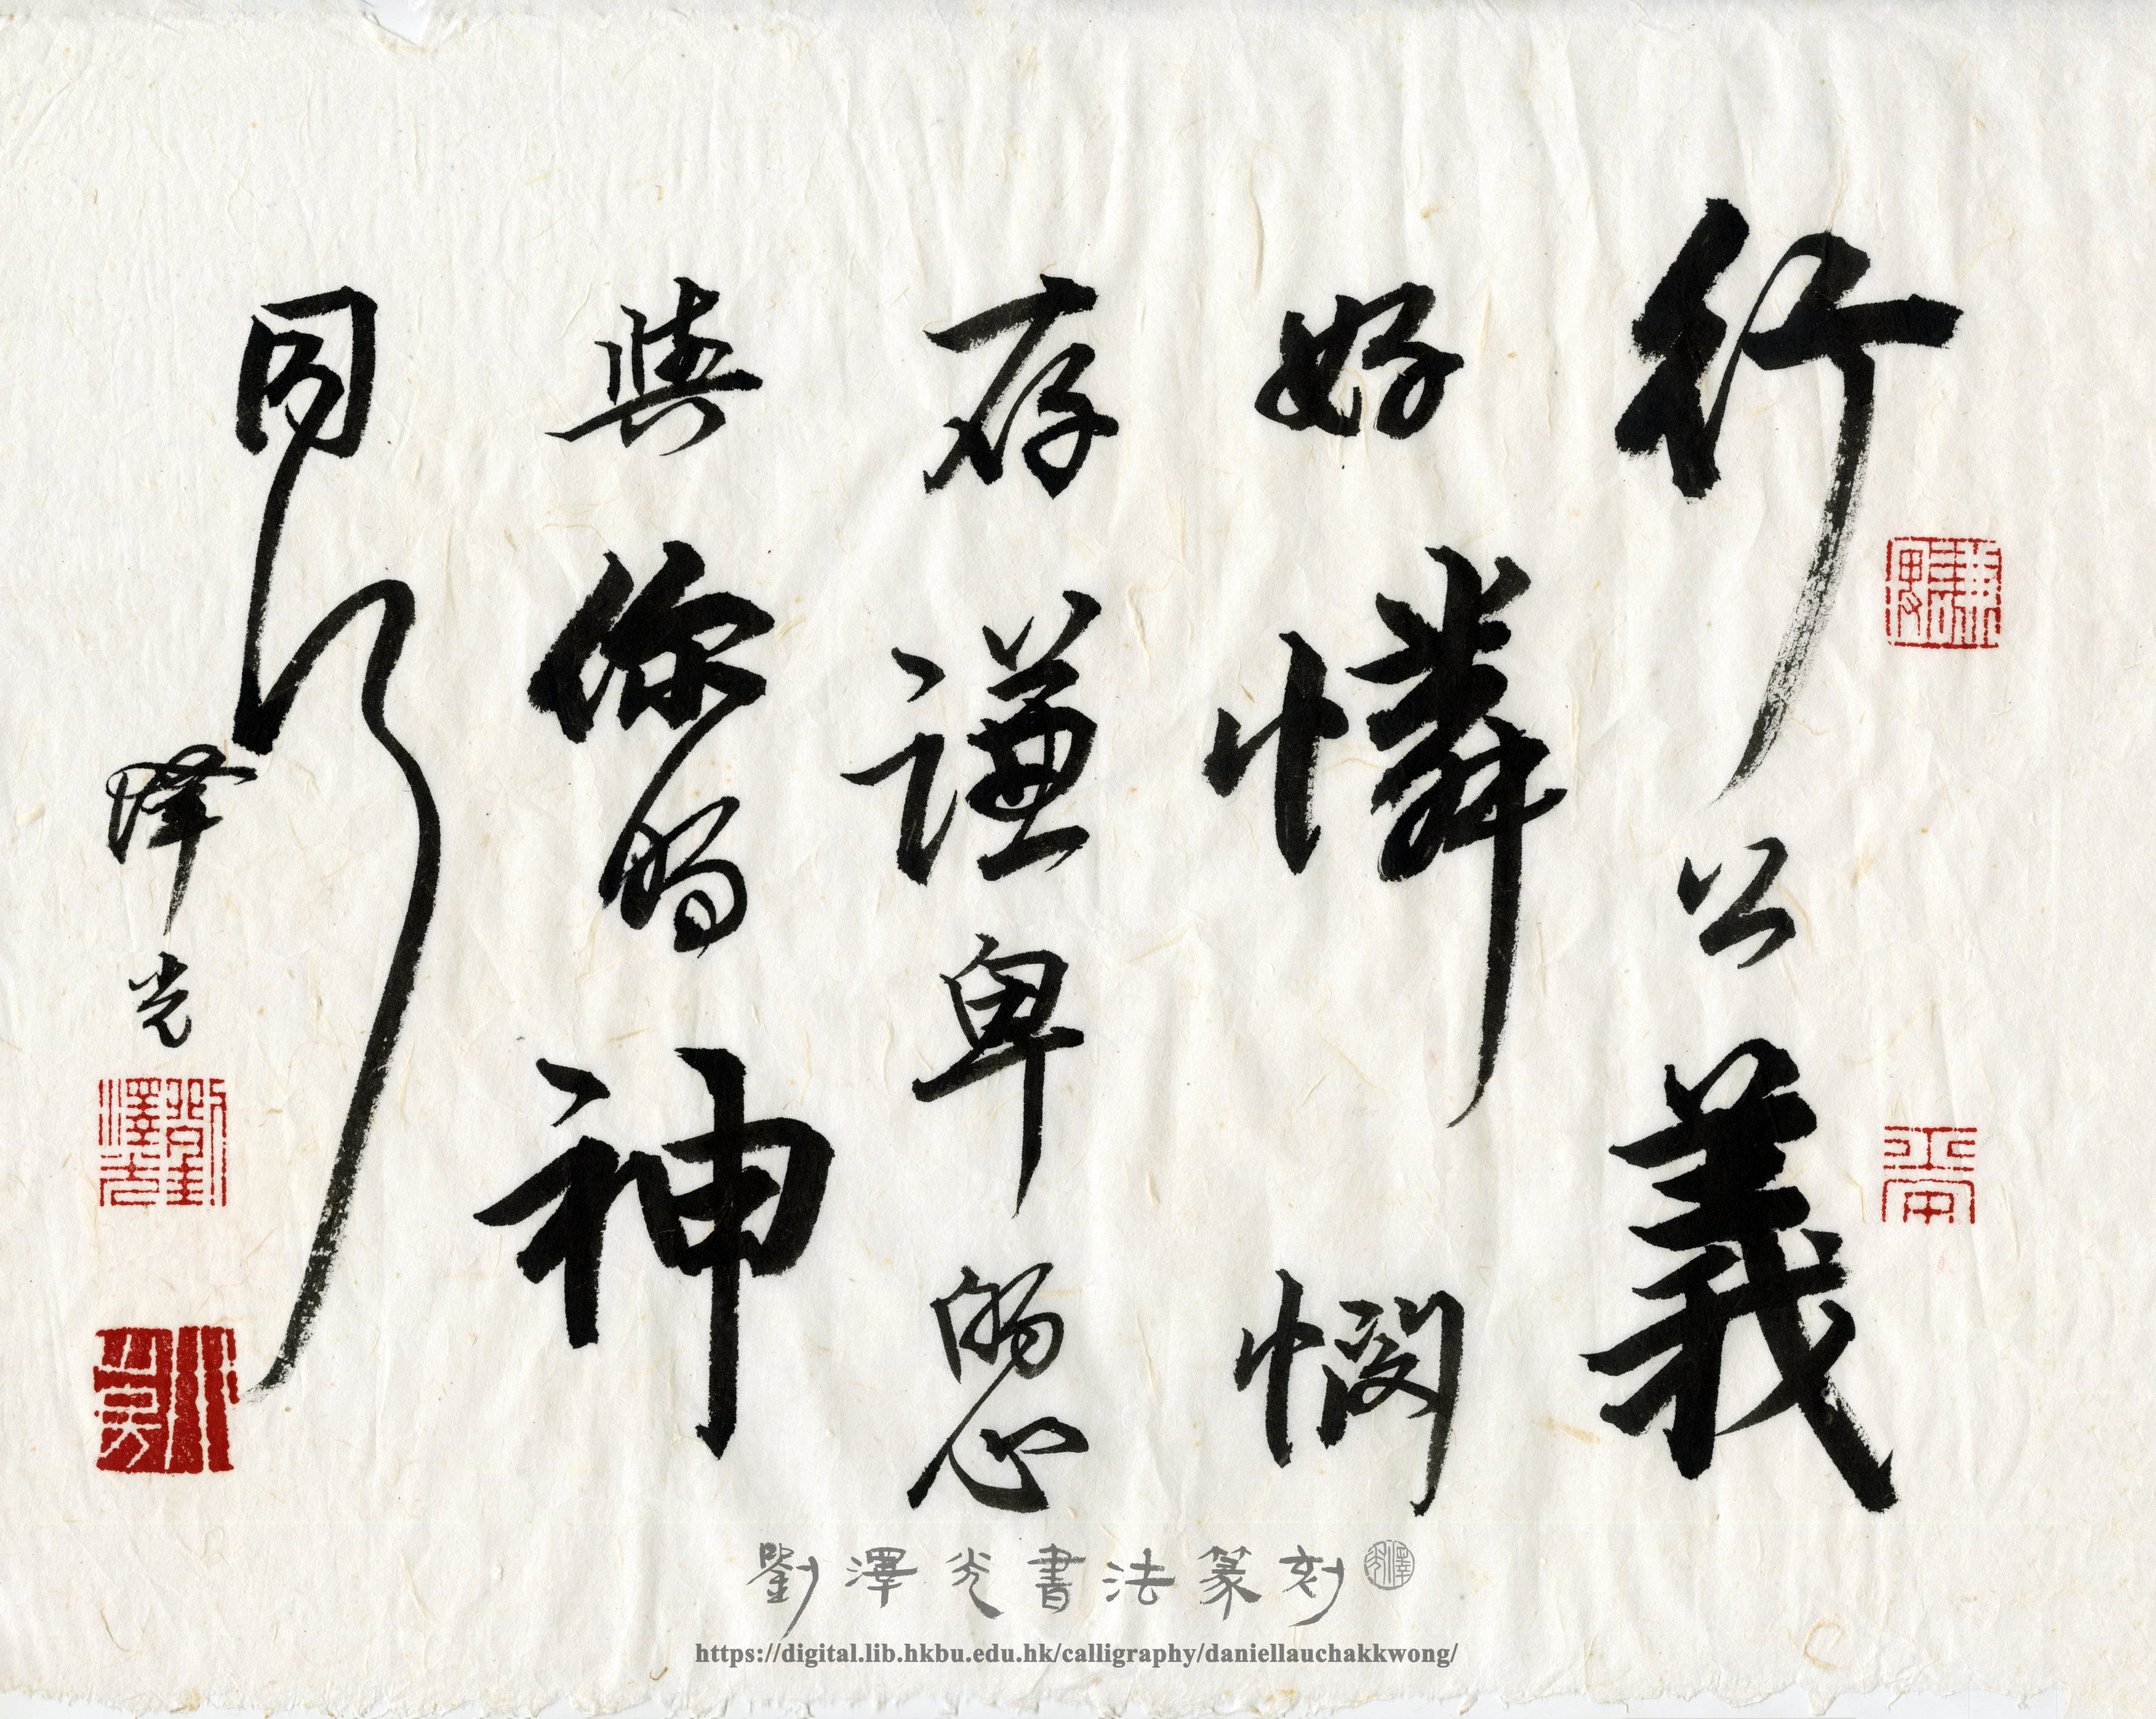 行公義
好憐憫
存謙卑的心
與你的神
同行
澤光
劉澤光
劉澤光書法篆刻
https://digital.lib.hkbu.edu.hk/calligraphy/daniellauchakkwong/